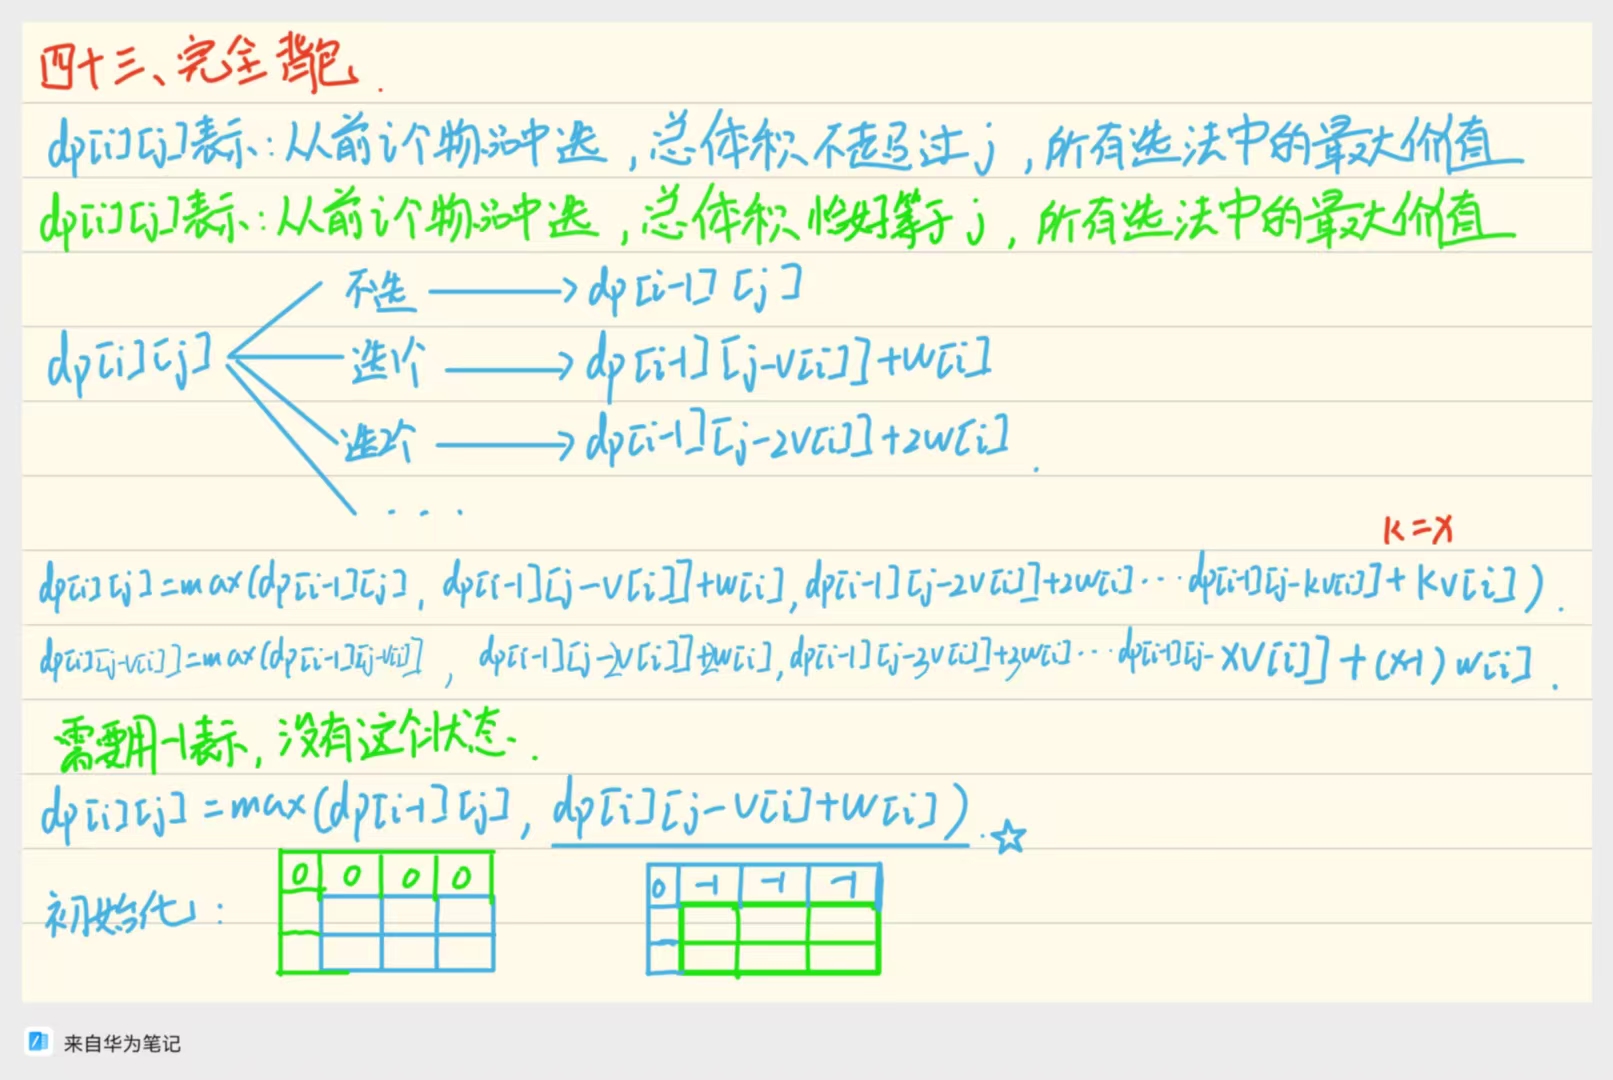 四十三、完全背包.
dp[i][j]表示:从前i个物品中选,总体积不超过j,所有选法中的最大价值
dp[i][j]表示:从前i个物品中选,总体积恰好等于j,所有选法中的最大价值
不选 → dp[i-1][j]
dp[i][j] 选1个 → dp[i-1][j-v[i]]+w[i]
选2个 → dp[i-1][j-2v[i]]+2w[i].
....
k=x
dp[i][j]=max(dp[i-1][j], dp[i-1][j-v[i]]+w[i], dp[i-1][j-2v[i]]+2w[i]...dp[i-1][j-kv[i]]+kv[i]).
dp[i][j-v[i]]=max(dp[i-1][j-v[i]], dp[i-1][j-2v[i]]+2w[i], dp[i-1][j-3v[i]]+3w[i]...dp[i-1][j-xv[i]]+(x-1)w[i].
需要用-1表示,没有这个状态.
dp[i][j]=max(dp[i-1][j], dp[i][j-v[i]+w[i]).☆
初始化:
0 0 0 0
0 -1 -1 -1
来自华为笔记